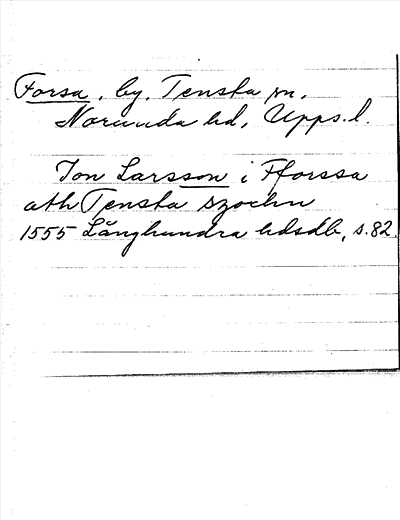 Forsa, by, Tensta sn,
Norunda hd, Upps. l.
Jon Larsson i Fforssa
ath Tensta szochn
1555 Långhundra hdsdb, s. 82.